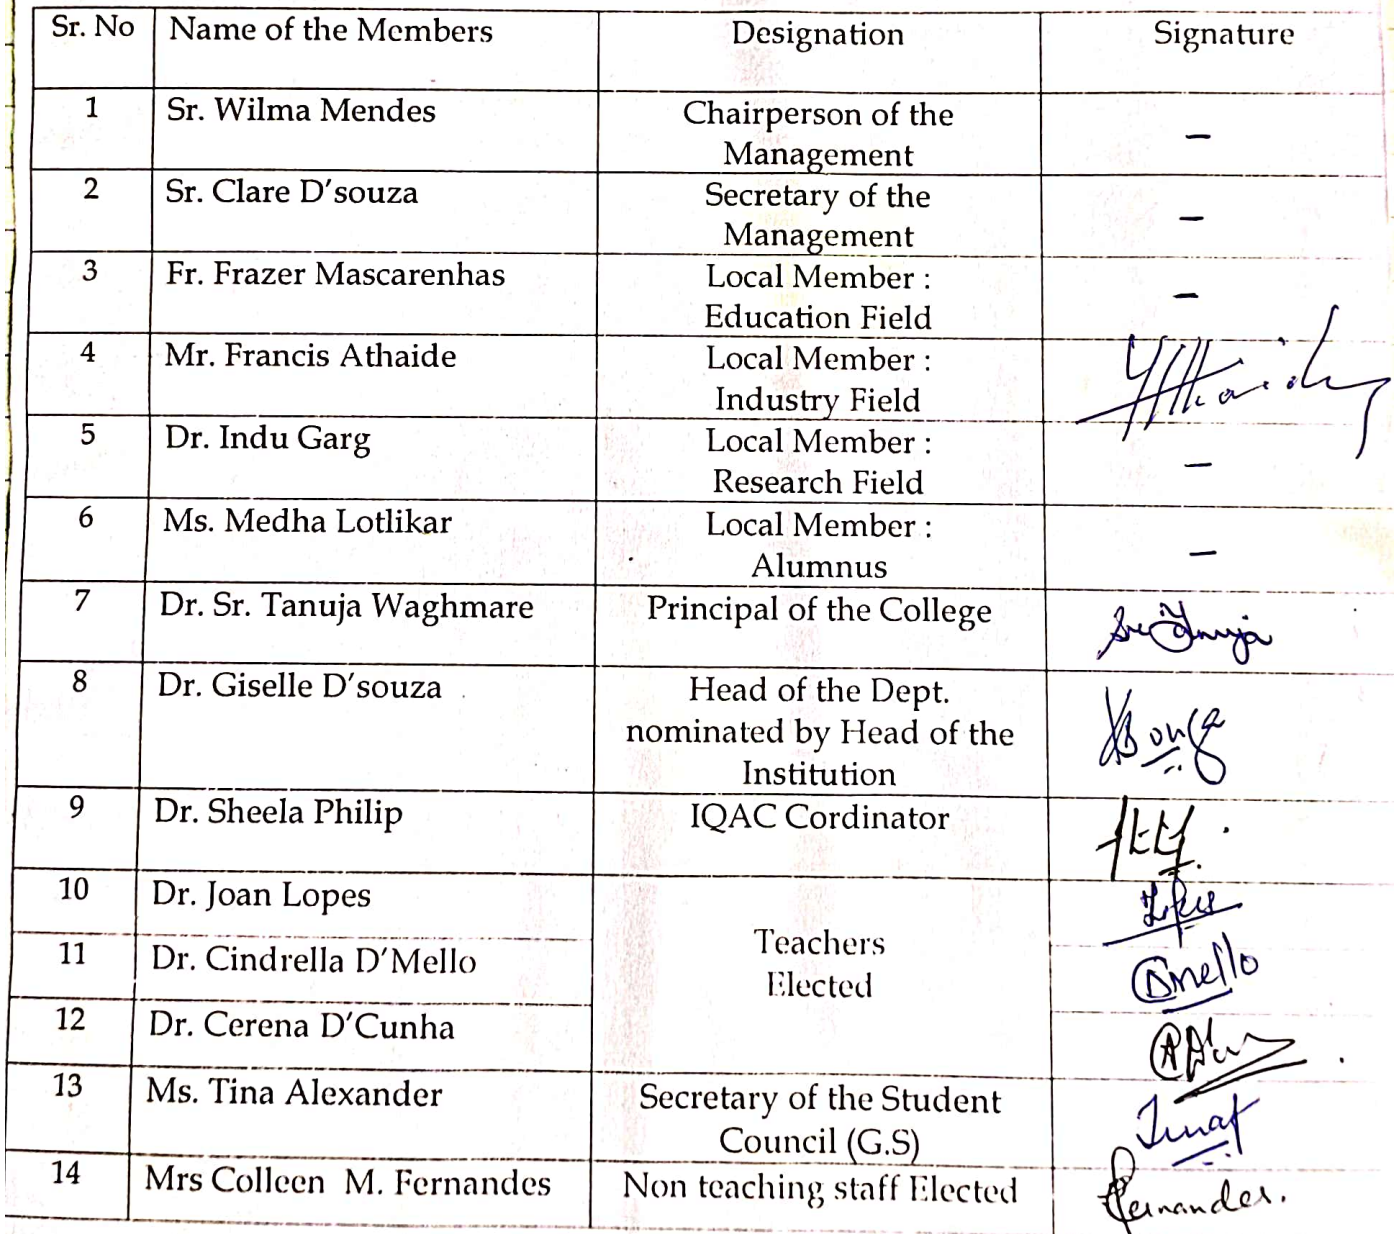 Sr. No Name of the Members Designation Signature
1 Sr. Wilma Mendes Chairperson of the
Management –
2 Sr. Clare D'souza Secretary of the
Management –
3 Fr. Frazer Mascarenhas Local Member :
Education Field –
4 Mr. Francis Athaide Local Member :
Industry Field
5 Dr. Indu Garg Local Member :
Research Field –
6 Ms. Medha Lotlikar Local Member :
Alumnus –
7 Dr. Sr. Tanuja Waghmare Principal of the College Sr Tanuja
8 Dr. Giselle D'souza Head of the Dept.
nominated by Head of the
Institution
9 Dr. Sheela Philip IQAC Cordinator
10 Dr. Joan Lopes
Teachers
11 Dr. Cindrella D'Mello Elected DMello
12 Dr. Cerena D'Cunha
13 Ms. Tina Alexander Secretary of the Student
Council (G.S)
14 Mrs Colleen M. Fernandes Non teaching staff Elected Fernandes.